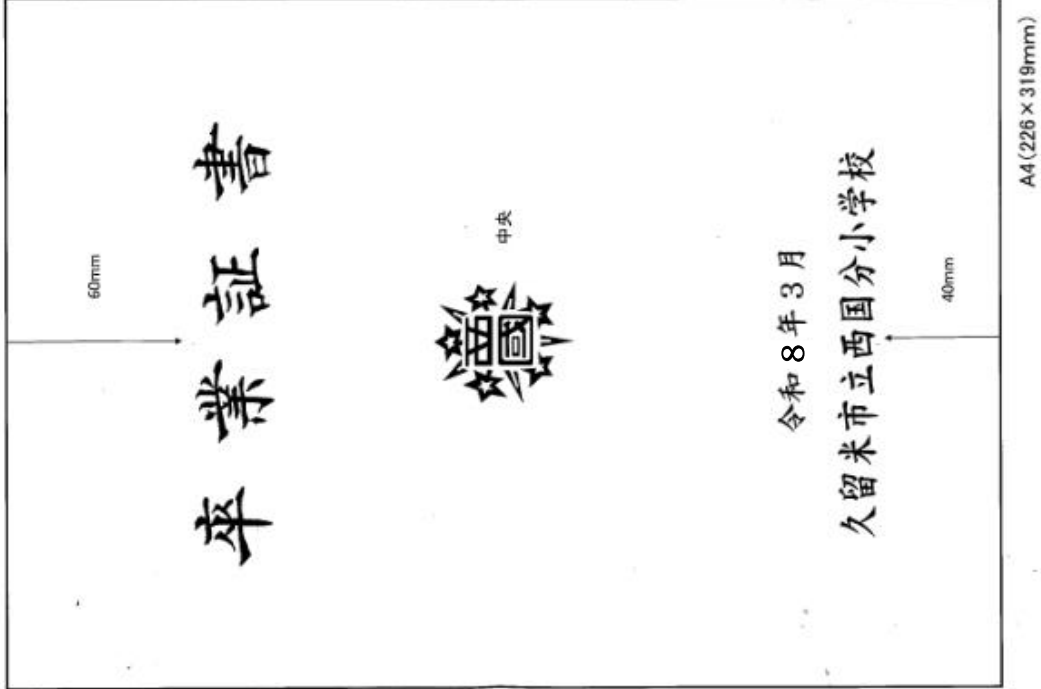 60mm
卒業証書
中央
西國
令和8年3月
久留米市立西国分小学校
40mm
A4(226×319mm)